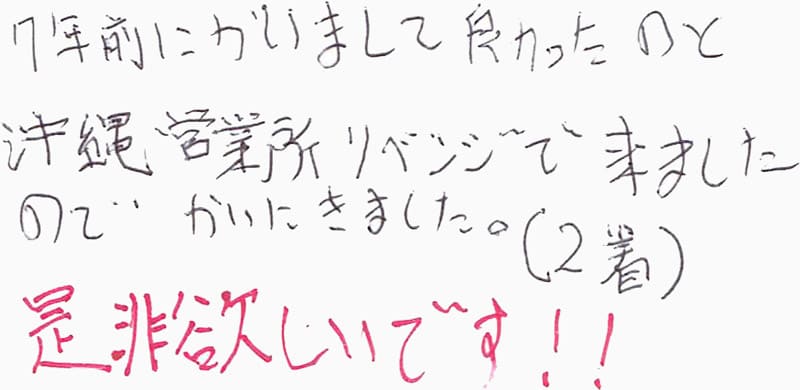 7年前にかいまして良かったのと
沖縄営業所リベンジで来ました
のでかいにきました。(2着)
是非欲しいです!!